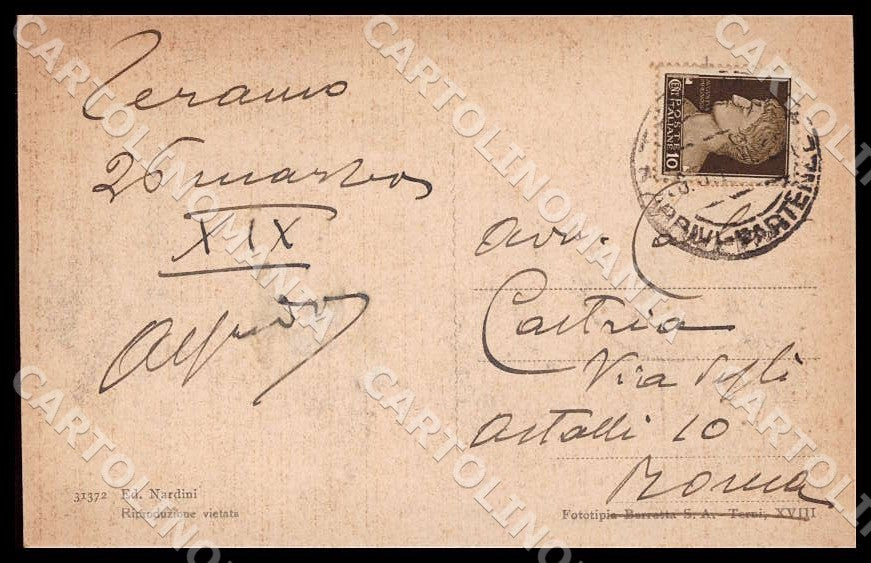 Teramo
26 marzo
XIX
Alfredo
POSTE
ITALIANE
CENT 10
ARRIVI PARTENZE
Avv.
Castria
Via degli
Astalli 10
Roma
31372 Ed. Nardini
Riproduzione vietata
Fototipia Barretta S. A. - Terni, XVIII
CARTOLINOMANIA
CARTOLINOMANIA
CARTOLINOMANIA
CARTOLINOMANIA